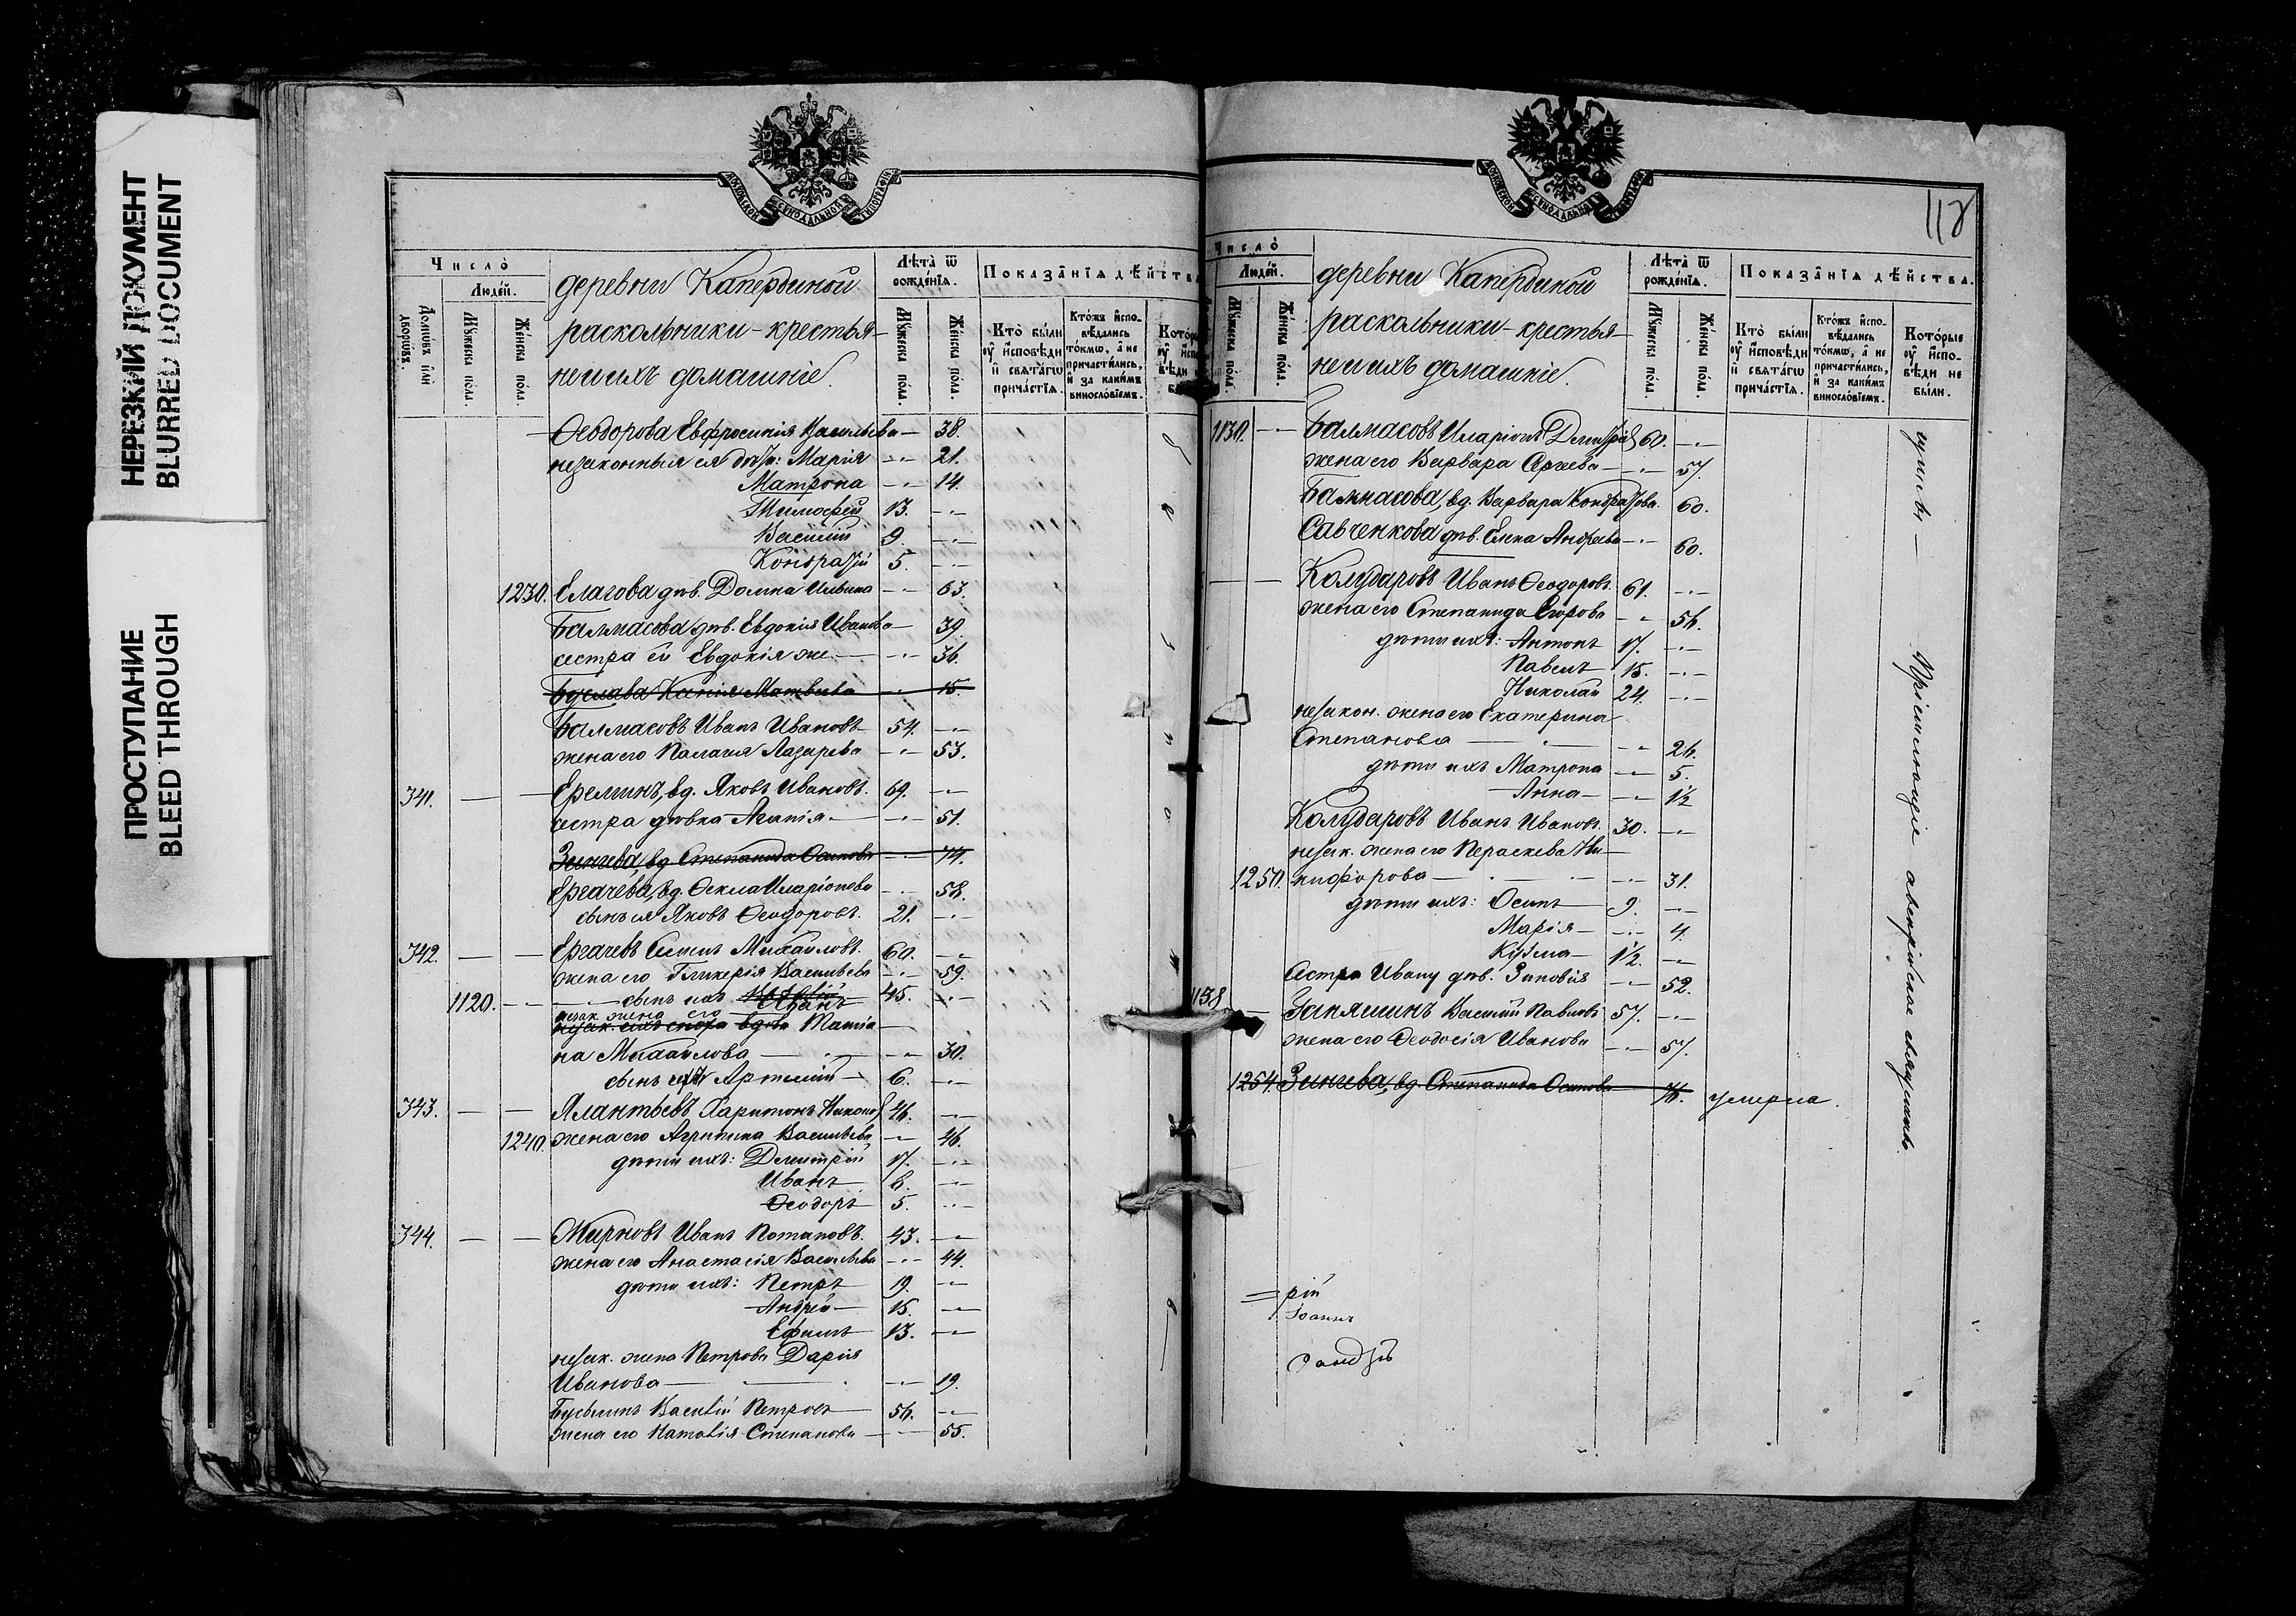 НЕРЕЗКИЙ ДОКУМЕНТ
BLURRED DOCUMENT
ПРОСТУПАНИЕ
BLEED THROUGH
МОСКОВСКОЙ СѴНОДАЛЬНОЙ ТИПОГРАФІИ
Число̀
Людéй.
Домѡ́въ и҆лѝ дворѡ́въ.
Мꙋ́жеска по́ла.
Же́нска по́ла.
деревни Капердиной
раскольники-крестья-
не и ихъ домашніе.
Лѣ̀та ѿ рожде́нїѧ.
Мꙋ́жеска по́ла.
Же́нска по́ла.
Показа̑нїѧ дѣ́йства
Кто̀ бы́ли ᲂу҆ и҆сповѣ́ди и҆ свѧта́гѡ причасті́ѧ.
Кто́жъ и҆спо-
вѣ́дались то́кмѡ, а҆ не причасти́лись, и҆ за каки́мъ винослові́емъ.
Ѳеодорова Евфросинія Васильева — 38.
незаконныя ея дѣти: Марія -"- 21.
Матрона -"- 14.
Тимофей 13. -"-
Василій 9. -"-
Кондратій 5. -"-
1230. Елагова дѣв. Домна Ильина -"- 63.
Балмасова дѣв. Евдокія Иванова — 39.
сестра ей Евдокія же. -"- 36.
Матвеева -"- 15.
Балмасовъ Иванъ Ивановъ 54. -"-
жена его Палагія Лазарева -"- 53.
341. — — Ереминъ, вд. Яковъ Ивановъ. 69. -"-
сестра дѣвка Агапія. -"- 51.
Зингева, вд. Степанида Осипова -"- 74.
Ергачева, вд. Ѳекла Иларіонова -"- 58.
сынъ ея Яковъ Ѳеодоровъ. 21. -"-
342. — — Ергачевъ Михаиловъ. 60. -"-
жена его Гликерія Васильева -"- 59.
1120. -"- сынъ ихъ Иванъ 45. -"-
незак. жена его
вдова Татія-
на Михайлова — -"- 30.
сынъ Артемій 6. -"-
343. — — Алантьевъ Харитонъ 46. -"-
1240. жена его Агрипина Васильева -"- 46.
дѣти ихъ: Димитрій 17. -"-
Иванъ 8. -"-
Ѳеодоръ 5. -"-
344. — — Жирновъ Иванъ Потаповъ. 43. -"-
жена его Анастасія Васильева -"- 44.
дѣти ихъ: Петръ 19. -"-
Андрей 15. -"-
Ефимъ 13. -"-
незак. жена Петрова Дарія
Иванова — -"- 19.
Василій Петровъ 56. -"-
жена его Наталія Степанова -"- 55.
118
МОСКОВСКОЙ СѴНОДАЛЬНОЙ ТИПОГРАФІИ
Число̀
Людéй.
Мꙋ́жеска по́ла.
Же́нска по́ла.
деревни Капердиной
раскольники-крестья-
не и ихъ домашніе.
Лѣ̀та ѿ рожде́нїѧ.
Мꙋ́жеска по́ла.
Же́нска по́ла.
Показа̑нїѧ дѣ́йства.
Кто̀ бы́ли ᲂу҆ и҆сповѣ́ди и҆ свѧта́гѡ причасті́ѧ.
Кто́жъ и҆спо-
вѣ́дались то́кмѡ, а҆ не причасти́лись, и҆ за каки́мъ винослові́емъ.
Кото́рые ᲂу҆ и҆спо-
вѣ́ди не бы́ли.
1130. -"- Балмасовъ Иларіонъ 60. -"-
жена его Варвара -"- 57.
Балмасова, вд. Варвара Кондратова. 60.
Савченкова дѣв. Елена Андреева -"- 60.
— — Колударовъ Иванъ Ѳеодоровъ 61. -"-
жена его Степанида Егорова -"- 56.
дѣти ихъ: Антонъ 17. -"-
Павелъ 15. -"-
Николай 24. -"-
незакон. жена его Екатерина
Степанова — -"- 26.
дѣти ихъ Матрона -"- 5.
Анна -"- 1½
Колударовъ Иванъ Ивановъ. 30. -"-
незак. жена его Пераскева Ни-
1250. кифорова — -"- 31.
дѣти ихъ: Осипъ 9. -"-
Марія -"- 4.
Кузьма 1½. -"-
сестра Ивану дѣв. Зиновія -"- 52.
1138 Запяшинъ Василій Павловъ 57. -"-
жена его Ѳеодосія Иванова -"- 57.
1254. Зингева, вд Степанида Осипова 76. умерла.
Пріемлющіе австрійское священство.
рій
Іоаннъ